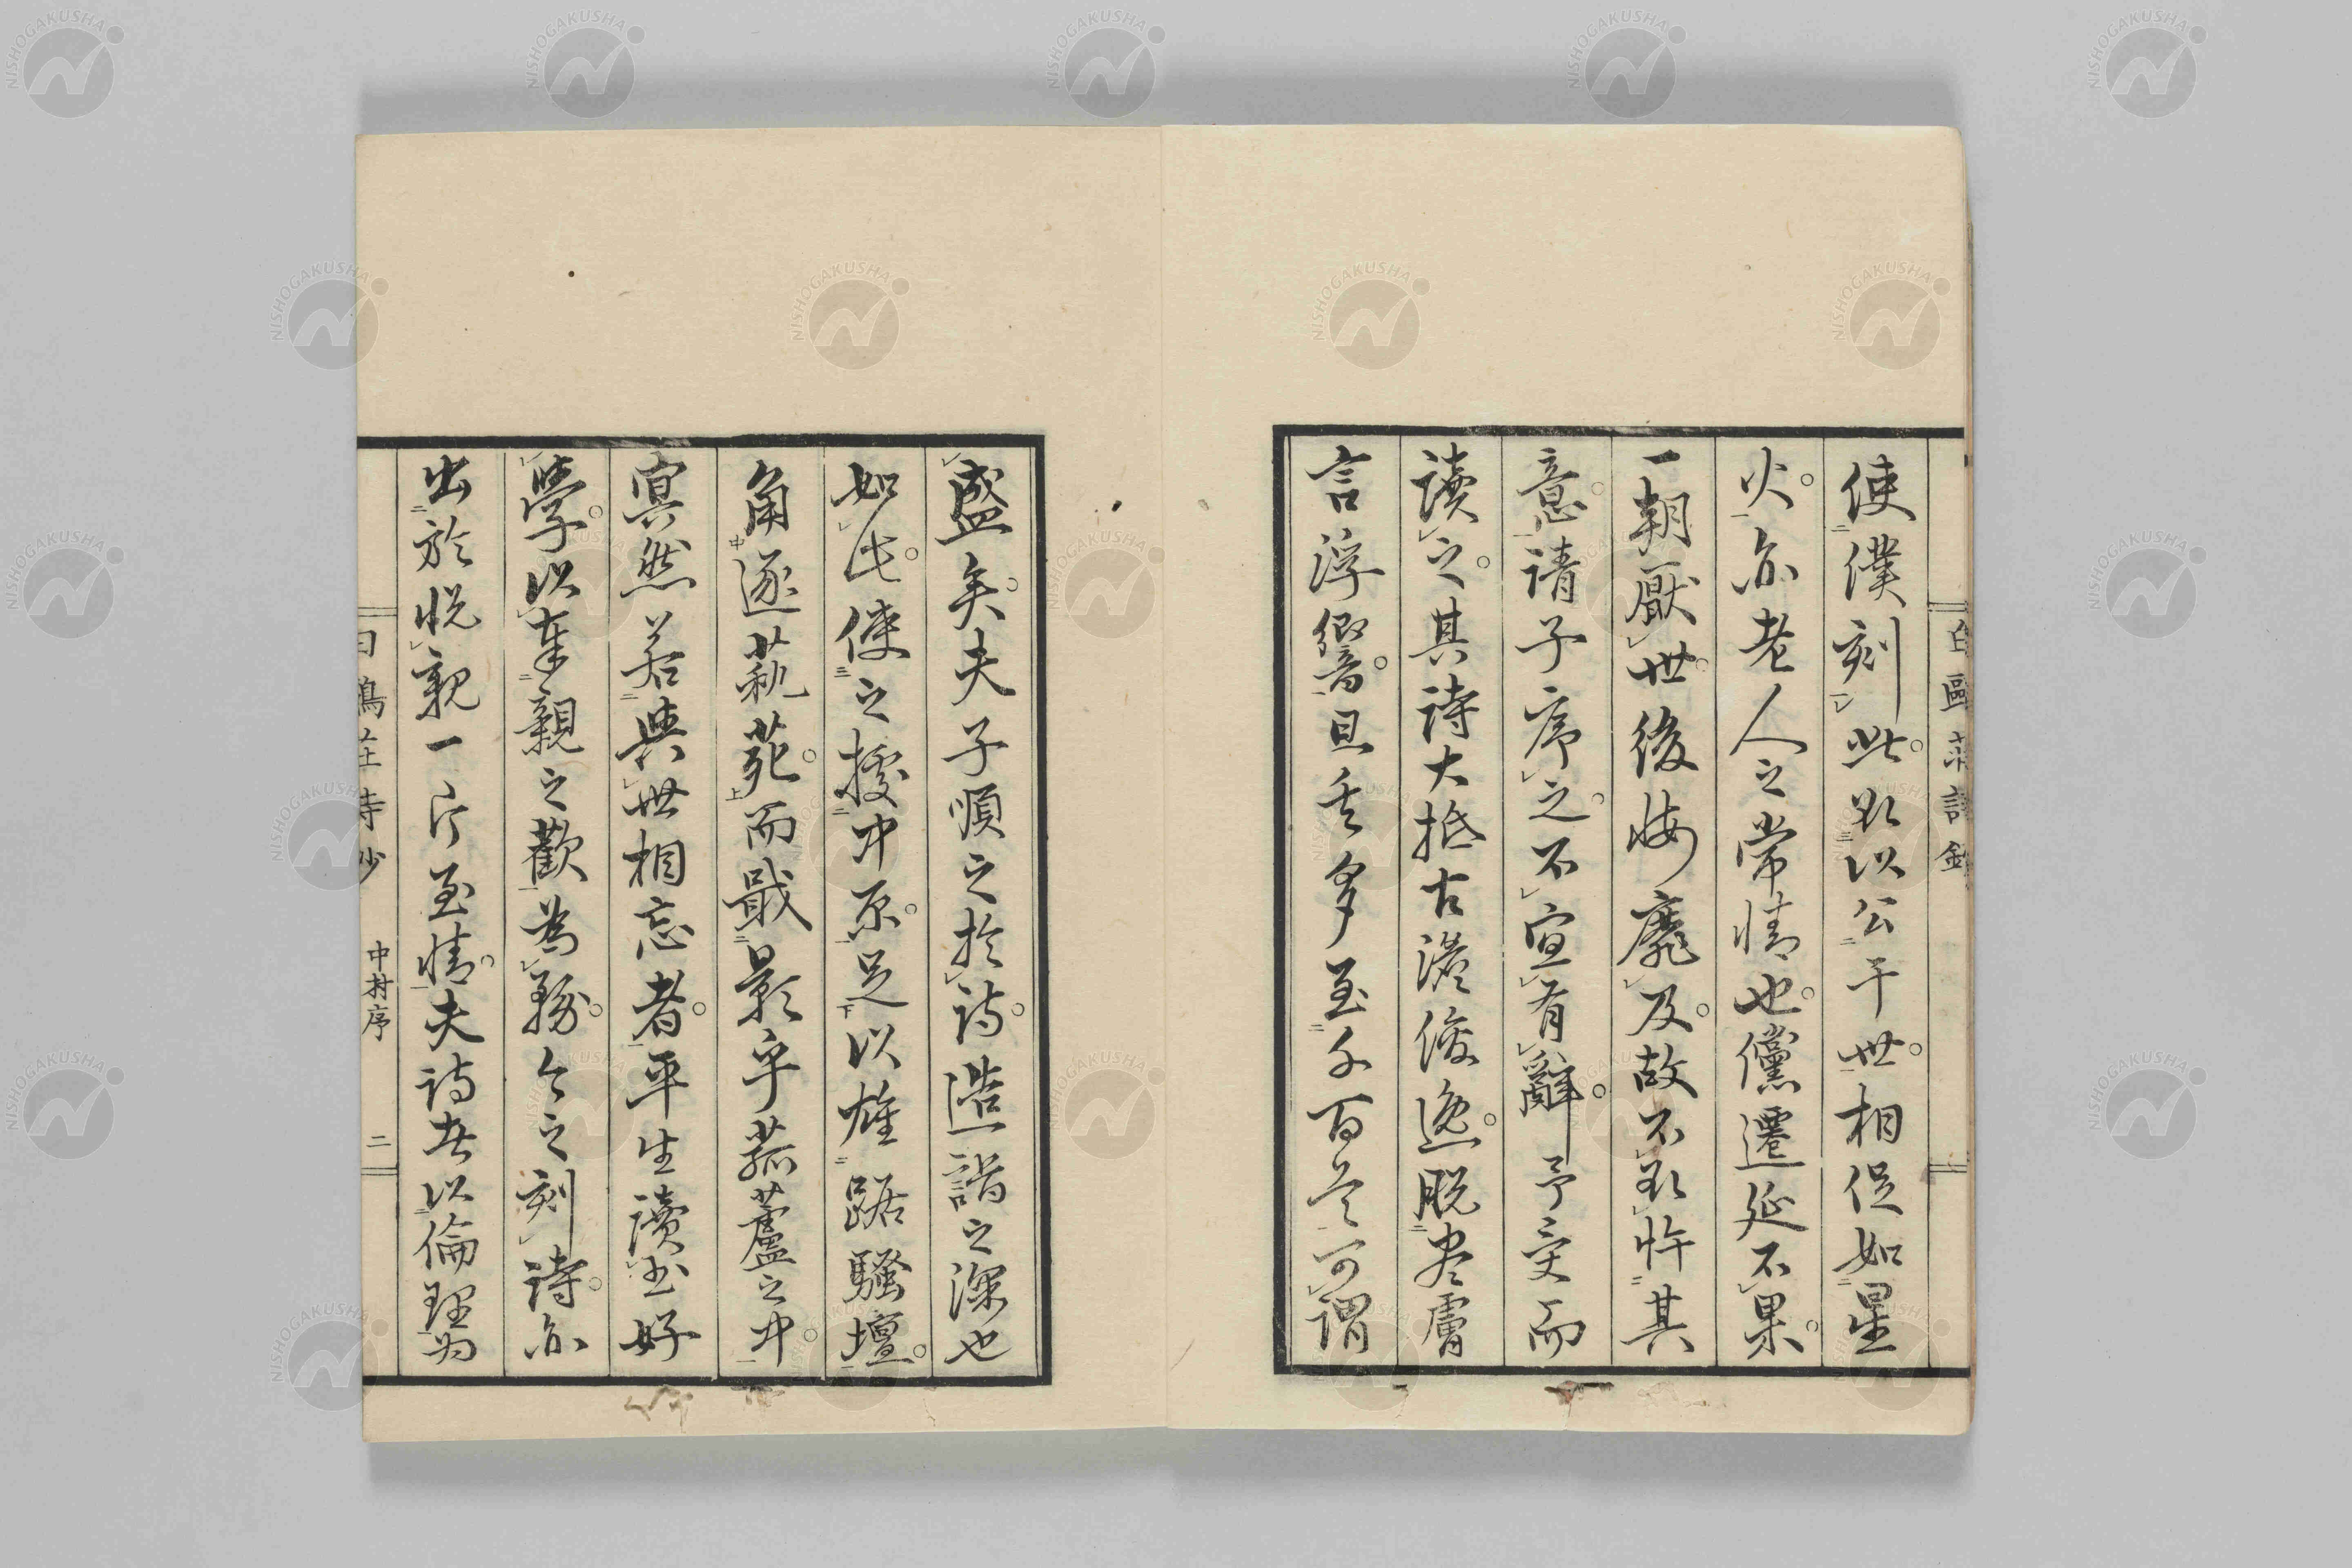 使僕刻此欲以公干世相促如星
火亦老人之常情也儻遷延不果
一朝厭世後悔靡及故不欲忤其
意請予序之不宜有辭予受而
讀之其詩大抵古澹俊逸脱盡膚
言浮響且夫多至千百首可謂
盛矣夫子順之於詩造詣之深也
如此使之援中原足以雄踞騷壇
角逐萟苑而戢影乎菰蘆之中
寞然若與世相忘者平生讀書好
學以奉親之歡為務今之刻詩亦
出於悦親一片至情夫詩者以倫理為
白鷗荘詩鈔 中村序 二
白鷗荘詩鈔
NISHOGAKUSHA